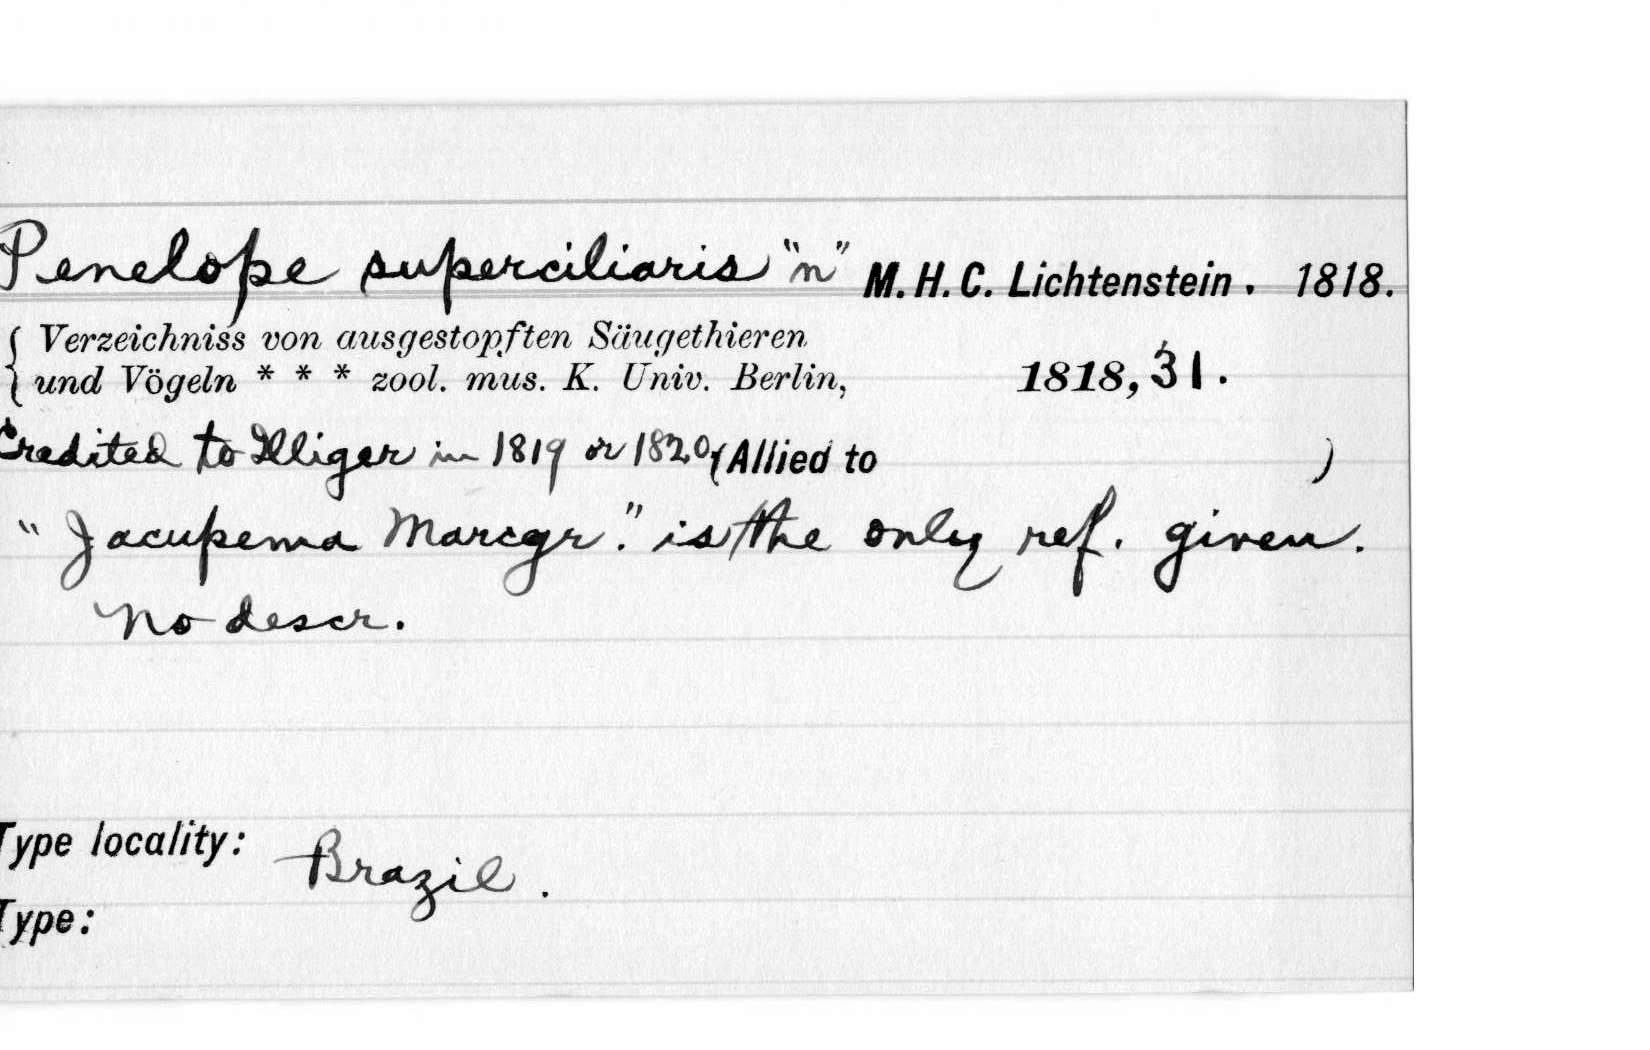 Penelope superciliaris "n" M. H. C. Lichtenstein. 1818.
{ Verzeichniss von ausgestopften Säugethieren
{ und Vögeln * * * zool. mus. K. Univ. Berlin, 1818, 31.
Credited to Illiger in 1819 or 1820 (Allied to )
"Jacupema Marcgr." is the only ref. given.
No descr.
Type locality: Brazil.
Type: